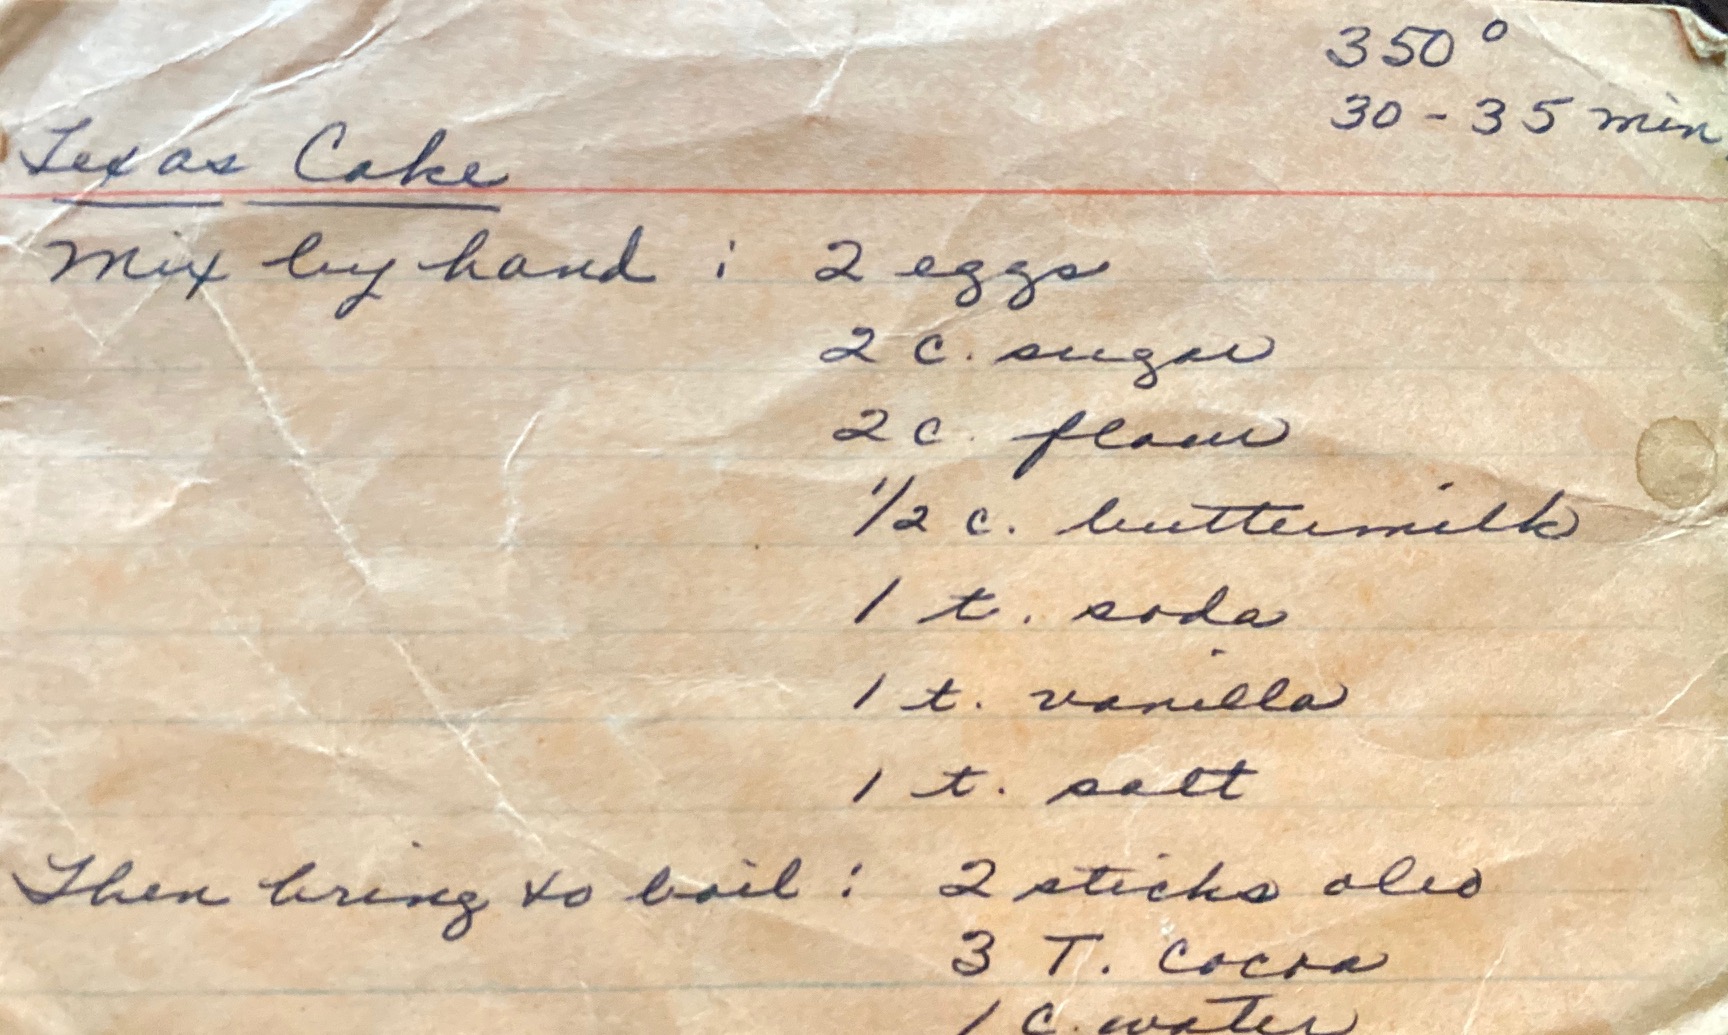 350°
30 - 35 min.
Texas Cake
Mix by hand : 2 eggs
2 c. sugar
2 c. flour
1/2 c. buttermilk
1 t. soda
1 t. vanilla
1 t. salt
Then bring to boil : 2 sticks oleo
3 T. cocoa
1 c. water